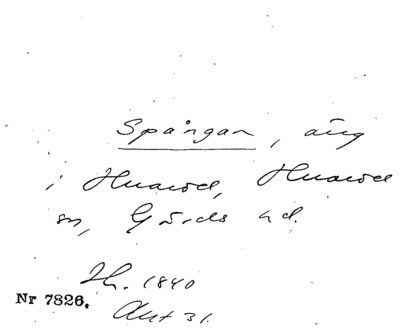 Spångan, äng
i Huaröd, Huaröd
sn, Gärds hd.
Th. 1840
Nr 7826.
Akt 31.